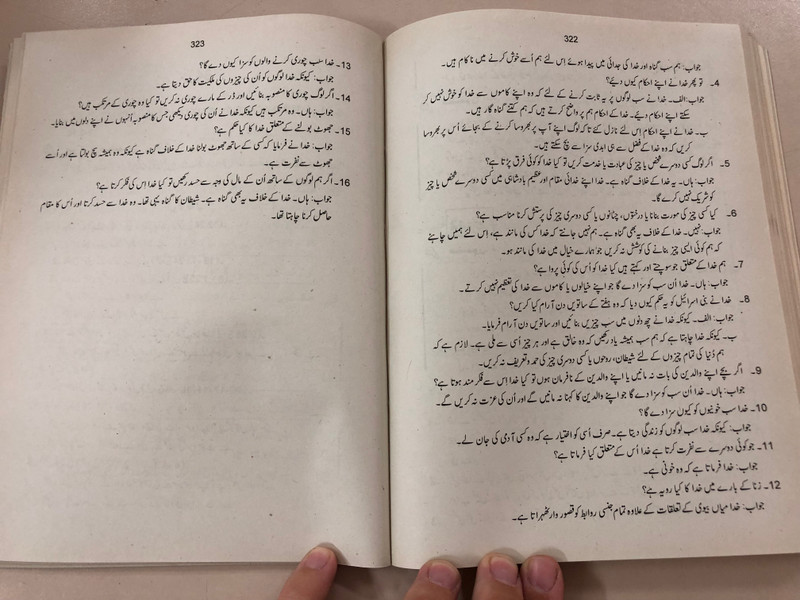 322
جواب: ہم سب گناہ اور خدا کی جدائی میں پیدا ہوئے اس لئے ہم اُسے خوش کرنے میں ناکام ہیں۔
4۔ تو پھر خدا نے اپنے احکام کیوں دیئے؟
جواب: الف۔ خدا نے سب لوگوں پر یہ ثابت کرنے کے لئے کہ وہ اپنے کاموں سے خدا کو خوش نہیں کر
سکتے اپنے احکام دیئے۔ خدا کے احکام ہم پر واضح کرتے ہیں کہ ہم کتنے گناہ گار ہیں۔
ب۔ خدا نے اپنے احکام اِس لئے نازل کئے تا کہ لوگ اپنے آپ پر بھروسا کرنے کے بجائے اُس پر بھروسا
کریں کہ وہ خدا کے فضل سے ہی ابدی سزا سے بچ سکتے ہیں۔
5۔ اگر لوگ کسی دوسرے شخص یا چیز کی عبادت یا خدمت کریں تو کیا خدا کو کوئی فرق پڑتا ہے؟
جواب: ہاں۔ یہ خدا کے خلاف گناہ ہے۔ خدا اپنے خدائی مقام اور عظیم بادشاہی میں کسی دوسرے شخص یا چیز
کو شریک نہیں کرے گا۔
6۔ کیا کسی چیز کی مورت بنانا یا درختوں، چٹانوں یا کسی دوسری چیز کی پرستش کرنا مناسب ہے؟
جواب: نہیں۔ خدا کے خلاف یہ بھی گناہ ہے۔ ہم نہیں جانتے کہ خدا کس کی مانند ہے، اِس لئے ہمیں چاہئے
کہ ہم کوئی ایسی چیز بنانے کی کوشش نہ کریں جو ہمارے خیال میں خدا کی مانند ہو۔
7۔ ہم خدا کے متعلق جو سوچتے اور کہتے ہیں کیا خدا کو اُس کی کوئی پروا ہے؟
جواب: ہاں۔ خدا اُن سب کو سزا دے گا جو اپنے خیالوں یا کاموں سے خدا کی تعظیم نہیں کرتے۔
8۔ خدا نے بنی اسرائیل کو یہ حکم کیوں دیا کہ وہ ہفتے کے ساتویں دن آرام کیا کریں؟
جواب: الف۔ کیونکہ خدا نے چھ دنوں میں سب چیزیں بنائیں اور ساتویں دن آرام فرمایا۔
ب۔ کیونکہ خدا چاہتا ہے کہ ہم سب ہمیشہ یاد رکھیں کہ وہ خالق ہے اور ہر چیز اُسی سے ملی ہے۔ لازم ہے کہ
ہم دُنیا کی تمام چیزوں کے لئے شیطان، روحوں یا کسی دوسری چیز کی حمد و تعریف نہ کریں۔
9۔ اگر بچے اپنے والدین کی بات نہ مانیں یا اپنے والدین کے نافرمان ہوں تو کیا خدا اِس سے فکر مند ہوتا ہے؟
جواب: ہاں۔ خدا اُن سب کو سزا دے گا جو اپنے والدین کا کہنا نہ مانیں گے اور اُن کی عزت نہ کریں گے۔
10۔ خدا سب خونیوں کو کیوں سزا دے گا؟
جواب: کیونکہ خدا سب لوگوں کو زندگی دیتا ہے۔ صرف اُسی کو اختیار ہے کہ وہ کسی آدمی کی جان لے۔
11۔ جو کوئی دوسرے سے نفرت کرتا ہے خدا اُس کے متعلق کیا فرماتا ہے؟
جواب: خدا فرماتا ہے کہ وہ خونی ہے۔
12۔ زنا کے بارے میں خدا کا کیا رویہ ہے؟
جواب: خدا میاں بیوی کے تعلقات کے علاوہ تمام جنسی روابط کو قصور وار ٹھہراتا ہے۔
323
13۔ خدا سب چوری کرنے والوں کو سزا کیوں دے گا؟
جواب: کیونکہ خدا لوگوں کو اُن کی چیزوں کی ملکیت کا حق دیتا ہے۔
14۔ اگر لوگ چوری کا منصوبہ بنائیں اور ڈر کے مارے چوری نہ کریں تو کیا وہ چوری کے مرتکب ہیں؟
جواب: ہاں۔ وہ مرتکب ہیں کیونکہ خدا نے اُن کی چوری دیکھی جس کا منصوبہ اُنہوں نے اپنے دلوں میں بنایا۔
15۔ جھوٹ بولنے کے متعلق خدا کا کیا حکم ہے؟
جواب: خدا نے فرمایا کہ کسی کے ساتھ جھوٹ بولنا خدا کے خلاف گناہ ہے کیونکہ وہ ہمیشہ سچ بولتا ہے اور اُسے
جھوٹ سے نفرت ہے۔
16۔ اگر ہم لوگوں کے ساتھ اُن کے مال کی وجہ سے حسد رکھیں تو کیا خدا اس کی فکر کرتا ہے؟
جواب: ہاں۔ خدا کے خلاف یہ بھی گناہ ہے۔ شیطان کا گناہ یہی تھا۔ وہ خدا سے حسد کرتا اور اُس کا مقام
حاصل کرنا چاہتا تھا۔